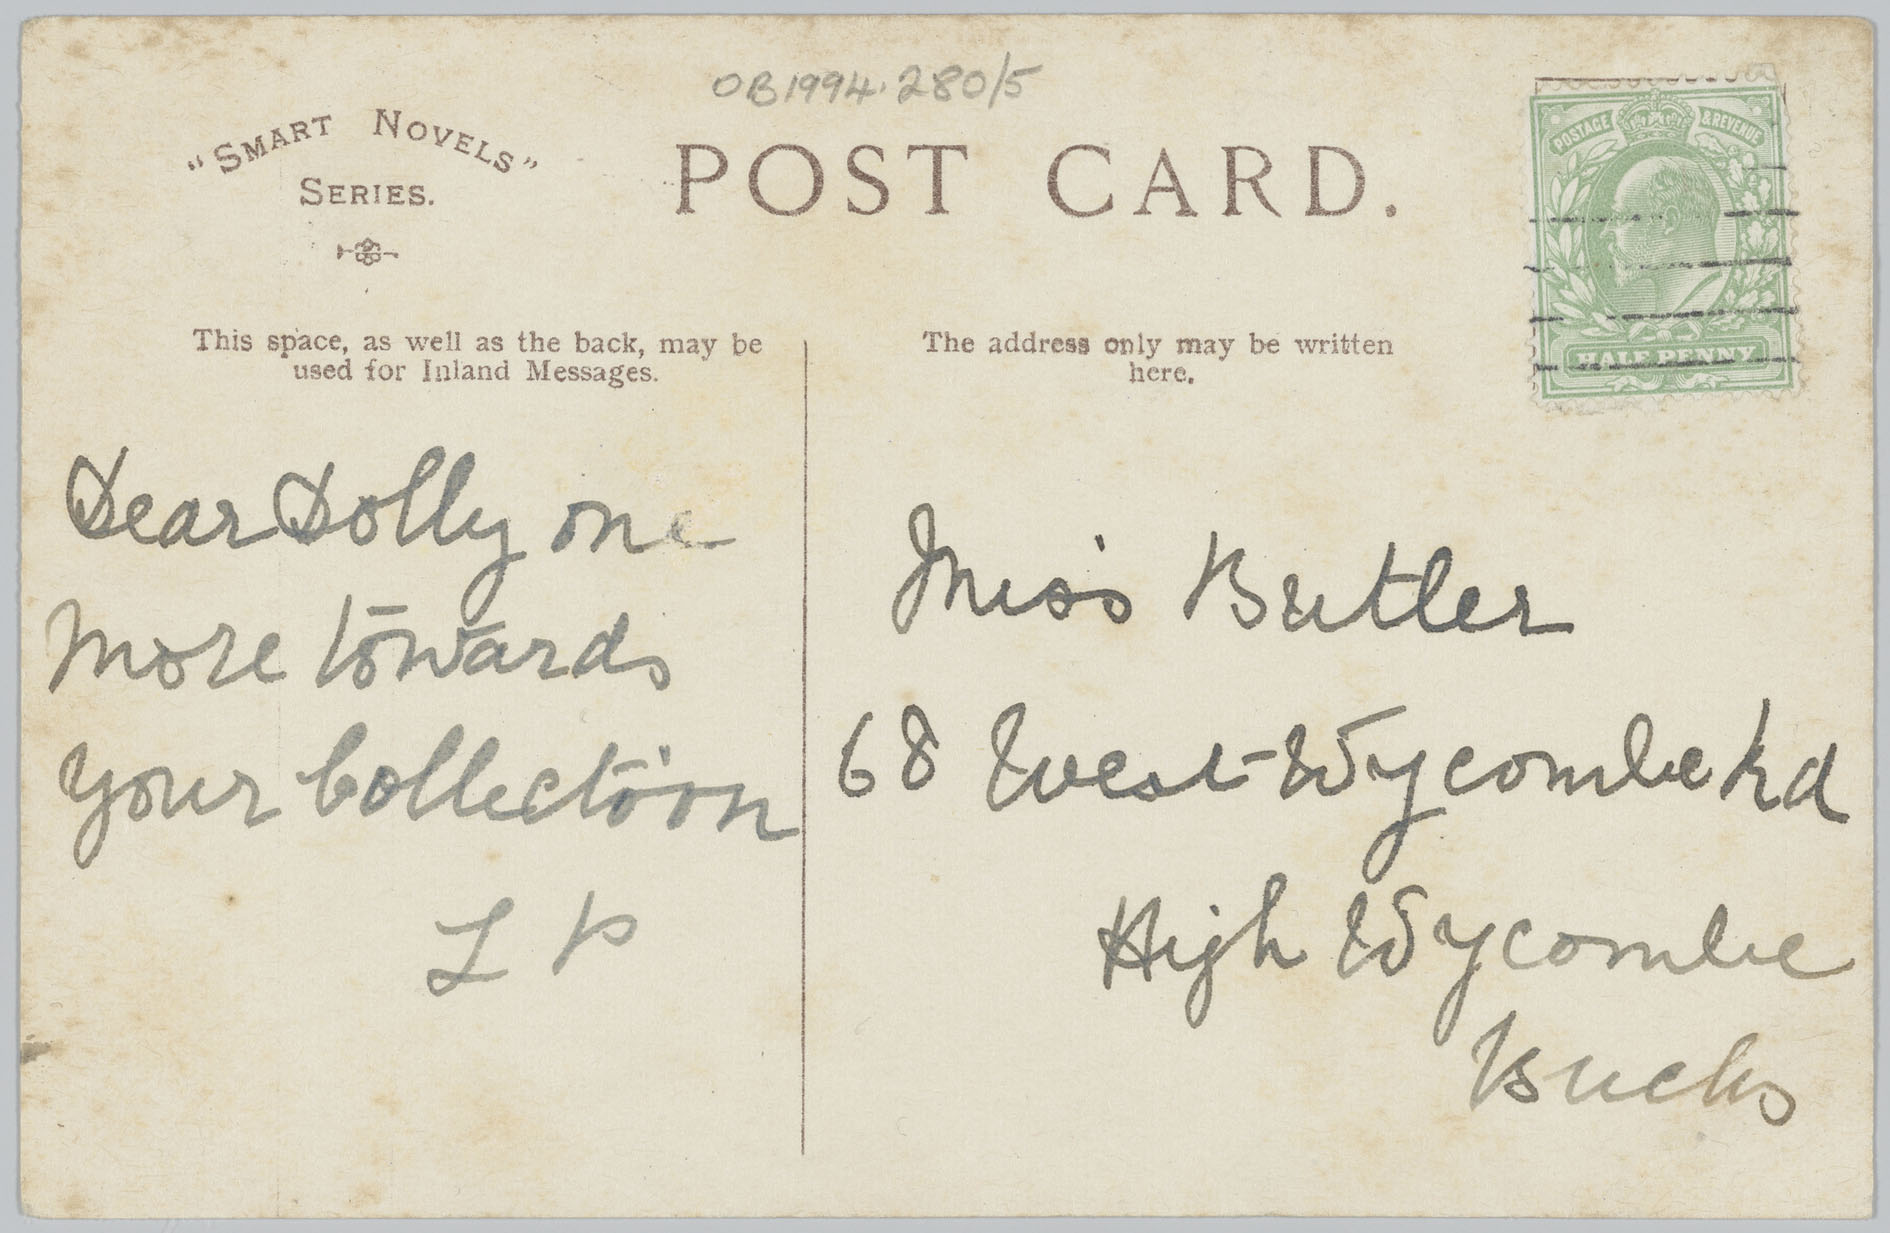 OB1994.280/5
"SMART NOVELS"
SERIES.
POST CARD.
POSTAGE & REVENUE
HALF PENNY
This space, as well as the back, may be
used for Inland Messages.
The address only may be written
here.
Dear Dolly one
more towards
your Collection
L P
Miss Butler
68 West Wycombe Rd
High Wycombe
Bucks